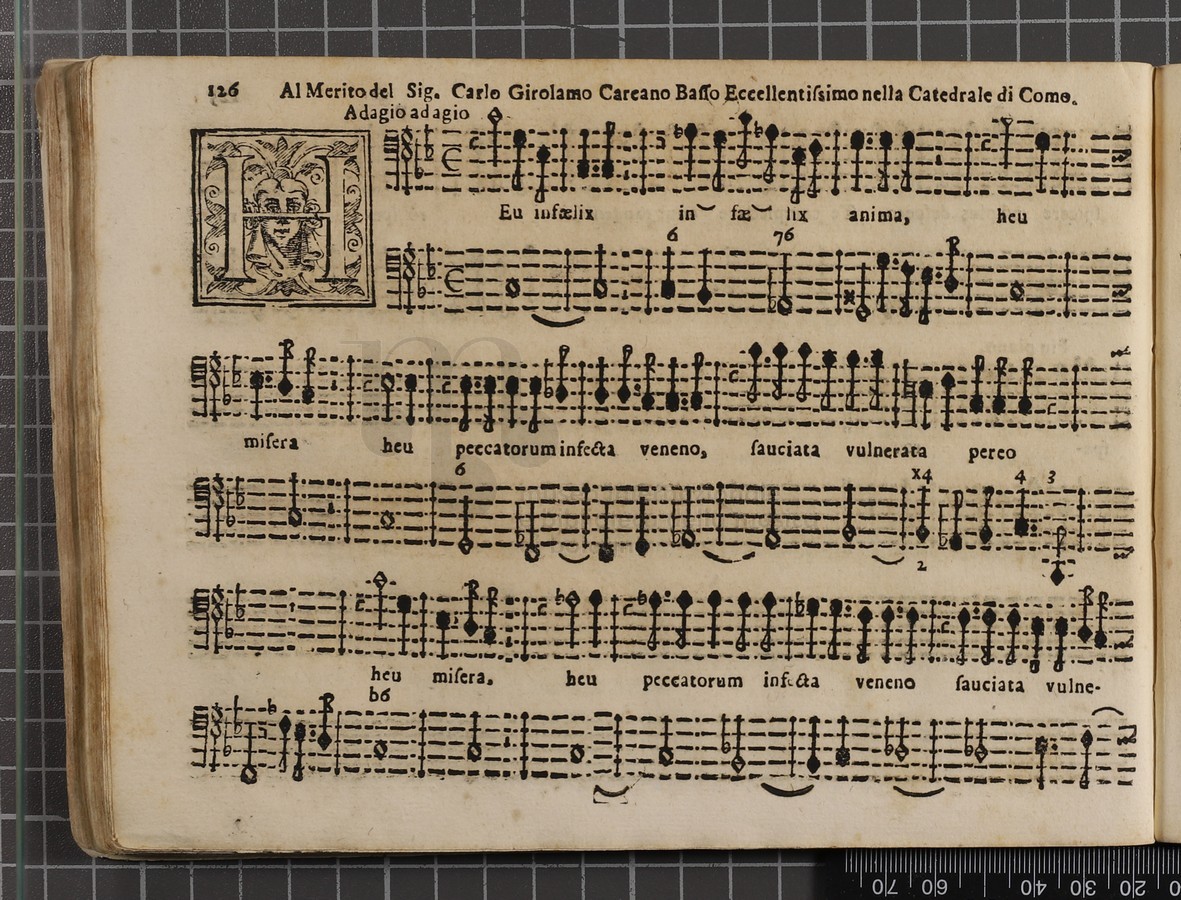 126 Al Merito del Sig. Carlo Girolamo Careano Baſſo Eccellentiſsimo nella Catedrale di Como.
Adagio ad agio
H
Eu infælix in fæ lix anima, heu
6 76
miſera heu peccatorum infecta veneno, ſauciata vulnerata pereo
6 x4 4 3
2
heu miſera. heu peccatorum infecta veneno ſauciata vulne-
b6
70 60 40 30 20